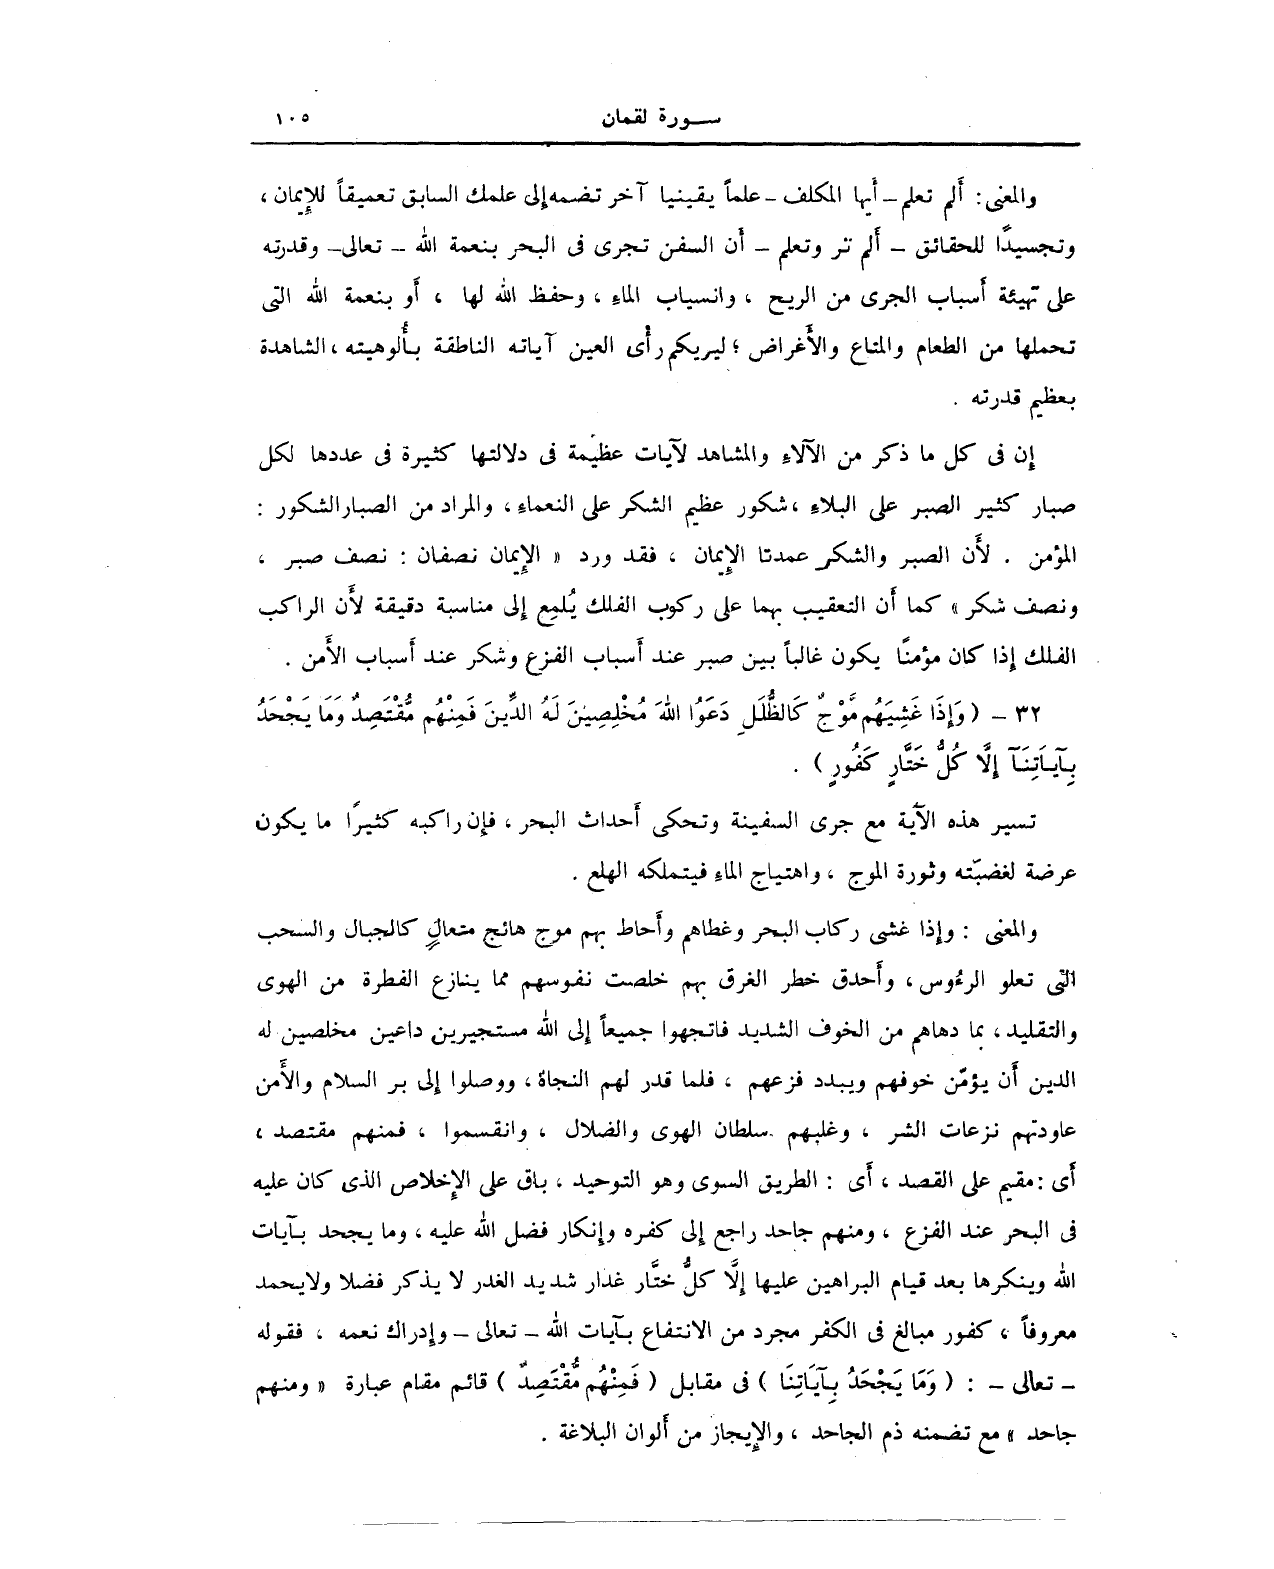 سورة لقمان ١٠٥
والمعنى : ألم تعلم – أيها المكلف – علماً يقينيا آخر تضمه إلى علمك السابق تعميقاً للإِيمان ،
وتجسيدًا للحقائق – ألم تر وتعلم – أن السفن تجرى فى البحر بنعمة الله – تعالى – وقدرته
على تهيئة أسباب الجرى من الريح ، وانسياب الماءِ ، وحفظ الله لها ، أو بنعمة الله التى
تحملها من الطعام والمتاع والأغراض ؛ ليريكم رأْى العين آياته الناطقة بأُلوهيته ، الشاهدة
بعظيم قدرته .
إن فى كل ما ذكر من الآلاءِ والمشاهد لآيات عظيمة فى دلالتها كثيرة فى عددها لكل
صبار كثير الصبر على البلاءِ ، شكور عظيم الشكر على النعماءِ ، والمراد من الصبار الشكور :
المؤمن . لأن الصبر والشكر عمدتا الإِيمان ، فقد ورد « الإِيمان نصفان : نصف صبر ،
ونصف شكر » كما أن التعقيب بهما على ركوب الفلك يُلمِع إلى مناسبة دقيقة لأن الراكب
الفلك إذا كان مؤمنًا يكون غالباً بين صبر عند أسباب الفزع وشكر عند أسباب الأمن .
٣٢ – ( وَإِذَا غَشِيَهُم مَّوْجٌ كَالظُّلَلِ دَعَوُا اللهَ مُخْلِصِينَ لَهُ الدِّينَ فَمِنْهُم مُّقْتَصِدٌ وَمَا يَجْحَدُ
بِآيَاتِنَآ إِلَّا كُلُّ خَتَّارٍ كَفُورٍ ) .
تسير هذه الآية مع جرى السفينة وتحكى أحداث البحر ، فإن راكبه كثيرًا ما يكون
عرضة لغضبّته وثورة الموج ، واهتياج الماءِ فيتملكه الهلع .
والمعنى : وإذا غشى ركاب البحر وغطاهم وأحاط بهم موج هائج متعالٍ كالجبال والسحب
التى تعلو الرءُوس ، وأحدق خطر الغرق بهم خلصت نفوسهم مما ينازع الفطرة من الهوى
والتقليد ، بما دهاهم من الخوف الشديد فاتجهوا جميعاً إلى الله مستجيرين داعين مخلصين له
الدين أن يؤمّن خوفهم ويبدد فزعهم ، فلما قدر لهم النجاة ، ووصلوا إلى بر السلام والأمن
عاودتهم نزعات الشر ، وغلبهم سلطان الهوى والضلال ، وانقسموا ، فمنهم مقتصد ،
أى : مقيم على القصد ، أى : الطريق السوى وهو التوحيد ، باق على الإِخلاص الذى كان عليه
فى البحر عند الفزع ، ومنهم جاحد راجع إلى كفره وإنكار فضل الله عليه ، وما يجحد بآيات
الله وينكرها بعد قيام البراهين عليها إلَّا كلُّ ختَّار غدار شديد الغدر لا يذكر فضلا ولا يحمد
معروفاً ، كفور مبالغ فى الكفر مجرد من الانتفاع بآيات الله – تعالى – وإدراك نعمه ، فقوله
– تعالى – : ( وَمَا يَجْحَدُ بِآيَاتِنَا ) فى مقابل ( فَمِنْهُم مُّقْتَصِدٌ ) قائم مقام عبارة « ومنهم
جاحد » مع تضمنه ذم الجاحد ، والإِيجاز من ألوان البلاغة .